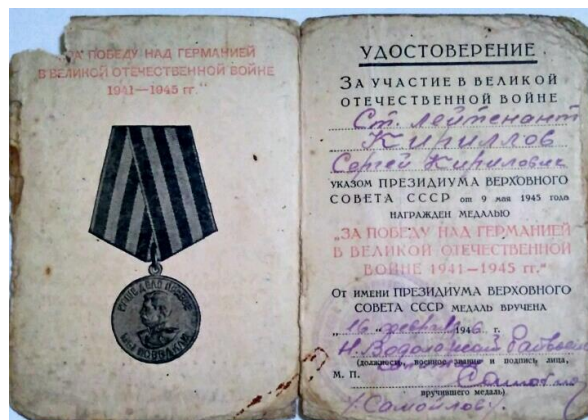 „ЗА ПОБЕДУ НАД ГЕРМАНИЕЙ
В ВЕЛИКОЙ ОТЕЧЕСТВЕННОЙ ВОЙНЕ
1941—1945 гг.“
НАШЕ ДЕЛО ПРАВОЕ
МЫ ПОБЕДИЛИ
УДОСТОВЕРЕНИЕ
ЗА УЧАСТИЕ В ВЕЛИКОЙ
ОТЕЧЕСТВЕННОЙ ВОЙНЕ
Ст. лейтенант
Кириллов
Сергей Кирилович
УКАЗОМ ПРЕЗИДИУМА ВЕРХОВНОГО
СОВЕТА СССР от 9 мая 1945 года
НАГРАЖДЕН МЕДАЛЬЮ
„ЗА ПОБЕДУ НАД ГЕРМАНИЕЙ
В ВЕЛИКОЙ ОТЕЧЕСТВЕННОЙ
ВОЙНЕ 1941—1945 гг.“
От имени ПРЕЗИДИУМА ВЕРХОВНОГО
СОВЕТА СССР МЕДАЛЬ ВРУЧЕНА
„16“ февраля 1946 г.
Н. Водолажский
(должность, военное звание и подпись лица,
М. П.
вручившего медаль)
Самойлов